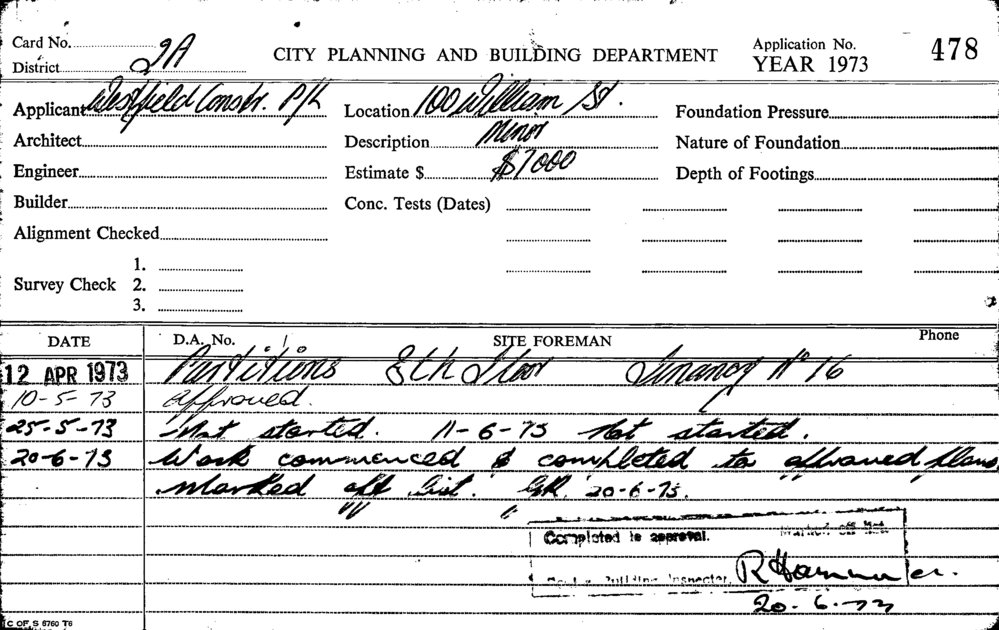 Card No.
District 2A
CITY PLANNING AND BUILDING DEPARTMENT
Application No. 478
YEAR 1973
Applicant Westfield Constr. P/L
Location 100 William St.
Foundation Pressure
Architect
Description Minor
Nature of Foundation
Engineer
Estimate $ $7000
Depth of Footings
Builder
Conc. Tests (Dates)
Alignment Checked
Survey Check 1.
2.
3.
DATE D.A. No. SITE FOREMAN Phone
12 APR 1973 Partitions 8th Floor Tenancy No 16
10-5-73 approved.
25-5-73 Not started. 11-6-73 Not started.
20-6-73 Work commenced & completed to approved plans
marked off list. 20-6-73.
Completed to approval. Marked off list
Building Inspector
20.6.73
C OF S 6760 T6